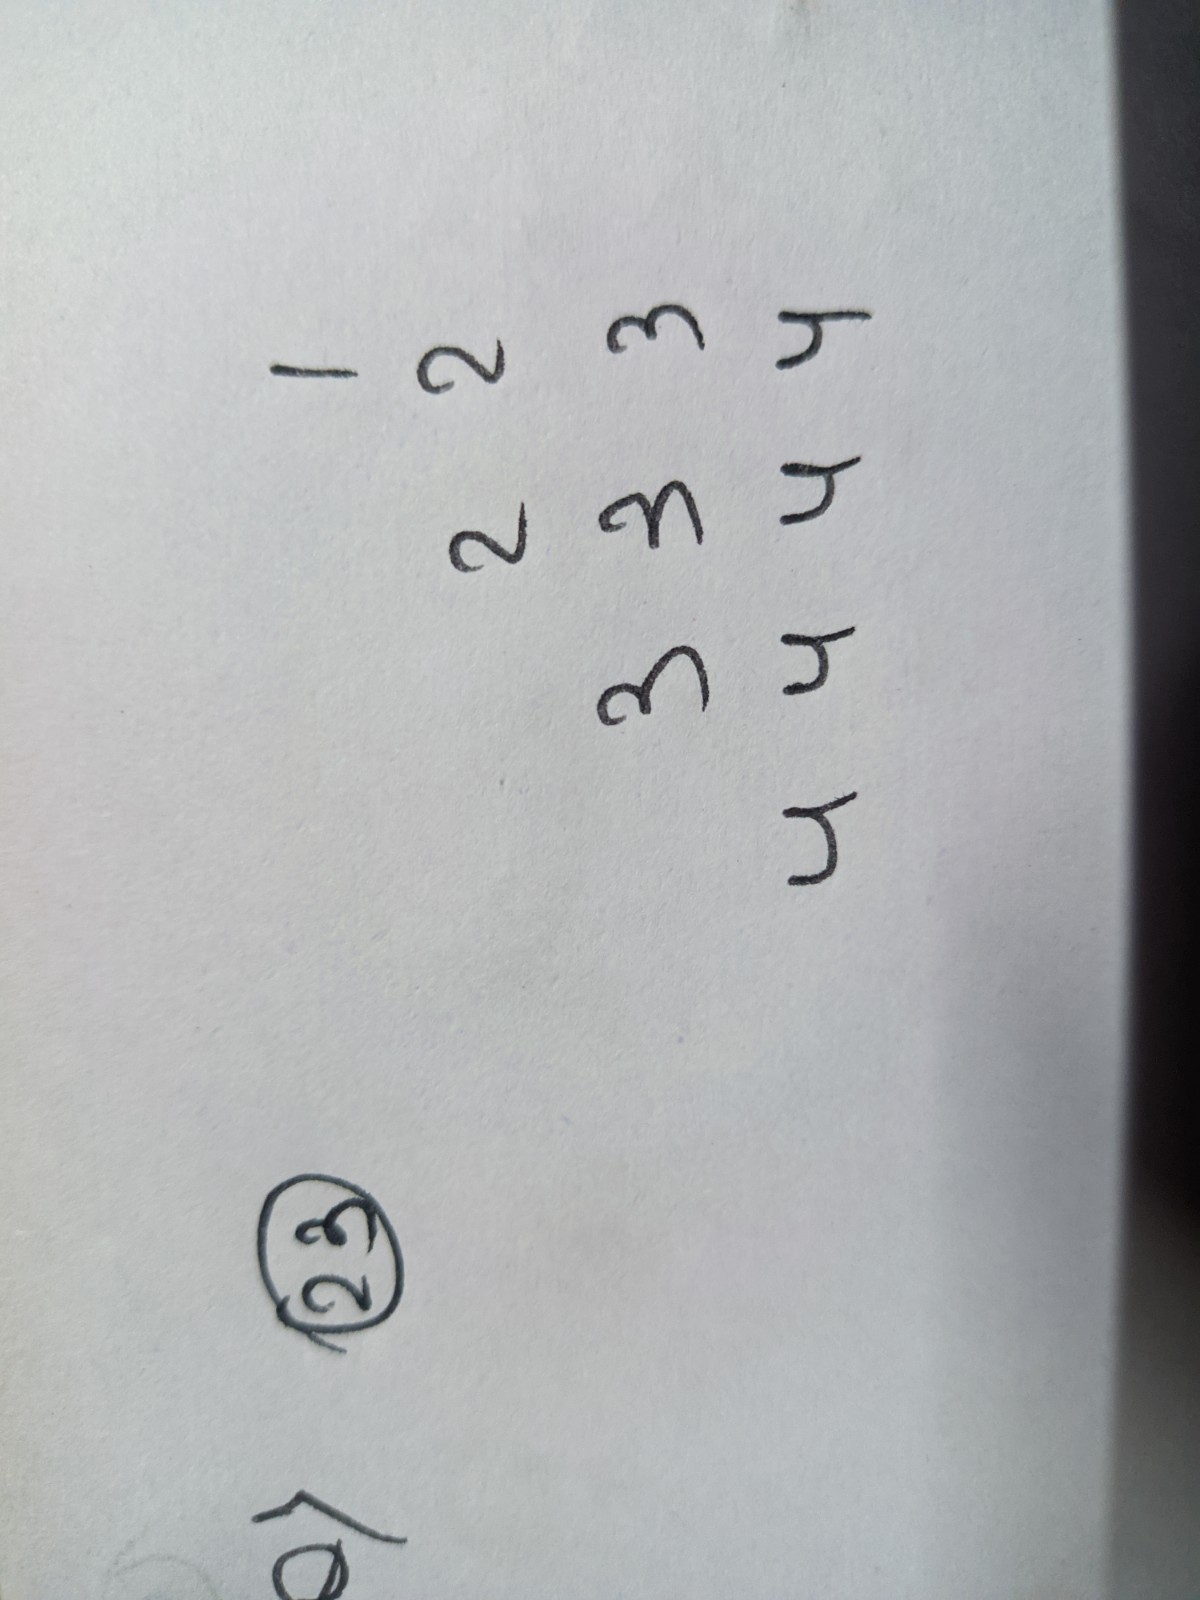 Q) 23 1
2 2
3 3 3
4 4 4 4